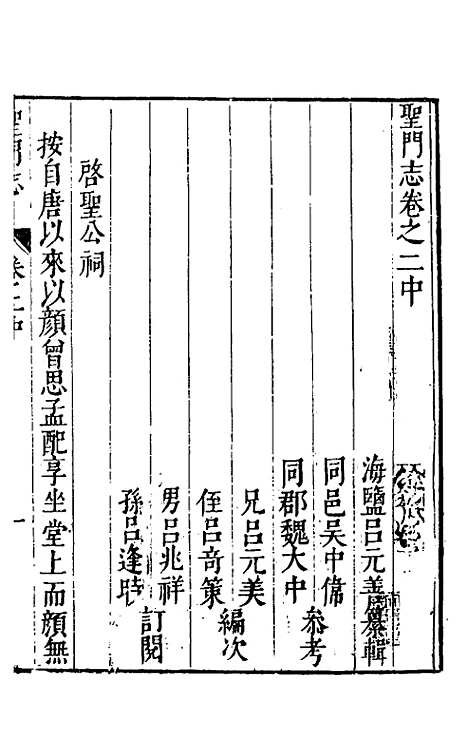 聖門志卷之二中
海鹽呂元善纂輯
同邑吳中偉
同郡魏大中
叅考
兄呂元美
侄呂奇策
編次
男呂兆祥
孫呂逢時
訂閱
啓聖公祠
按自唐以來以顏曾思孟配享坐堂上而顏無
聖門志
卷二中
一